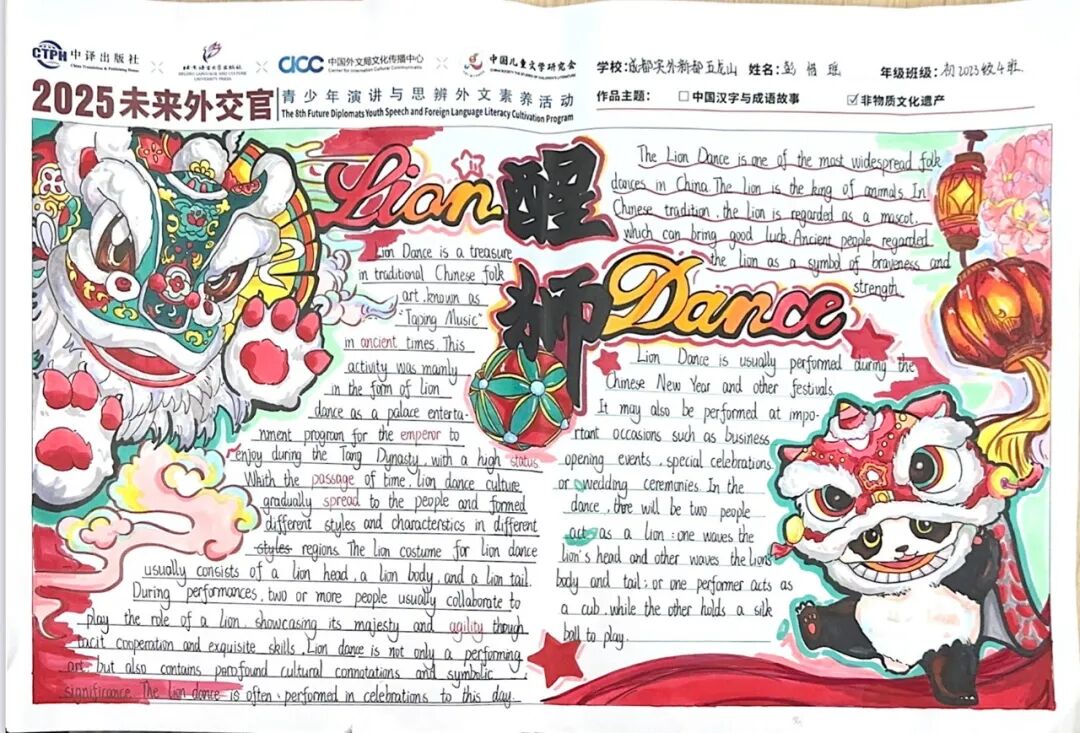 CTPH 中译出版社
China Translation & Publishing House
北京语言大学出版社
BEIJING LANGUAGE AND CULTURE UNIVERSITY PRESS
CICC 中国外文局文化传播中心
Center for International Cultural Communication
中国儿童文学研究会
学校:成都实外新都五龙山 姓名:彭惜 年级班级:初2023级4班
2025未来外交官
青少年演讲与思辨外文素养活动
The 8th Future Diplomats Youth Speech and Foreign Language Literacy Cultivation Program
作品主题: □中国汉字与成语故事 ☑非物质文化遗产
Lion 醒
狮 Dance
Lion Dance is a treasure
in traditional Chinese folk
art, known as
"Taping Music"
in ancient times. This
activity was mainly
in the form of lion
dance as a palace enterta-
nment program for the emperor to
enjoy during the Tang Dynasty, with a high status.
Whith the passage of time, lion dance culture
gradually spread to the people and formed
different styles and characterstics in different
styles regions. The lion costume for lion dance
usually consists of a lion head, a lion body, and a lion tail.
During performances, two or more people usually collaborate to
play the role of a lion, showcasing its majesty and agility though
tacit cooperation and exquisite skills. Lion dance is not only a performing
art, but also contains parofound cultural connotations and symbolic
significance. The lion dance is often performed in celebrations to this day.
The Lion Dance is one of the most widespread folk
dances in China. The Lion is the king of animals. In
Chinese tradition, the lion is regarded as a mascot,
which can bring good luck. Ancient people regarded
the lion as a symbol of braveness and
strength.
Lion Dance is usually performed during the
Chinese New Year and other festivals.
It may also be performed at impo-
rtant occasions such as business
opening events, special celebrations
or wedding ceremonies. In the
dance, thre will be two people
act as a lion: one waves the
lion's head and other waves the lion's
body and tail; or one performer acts as
a cub, while the other holds a silk
ball to play.